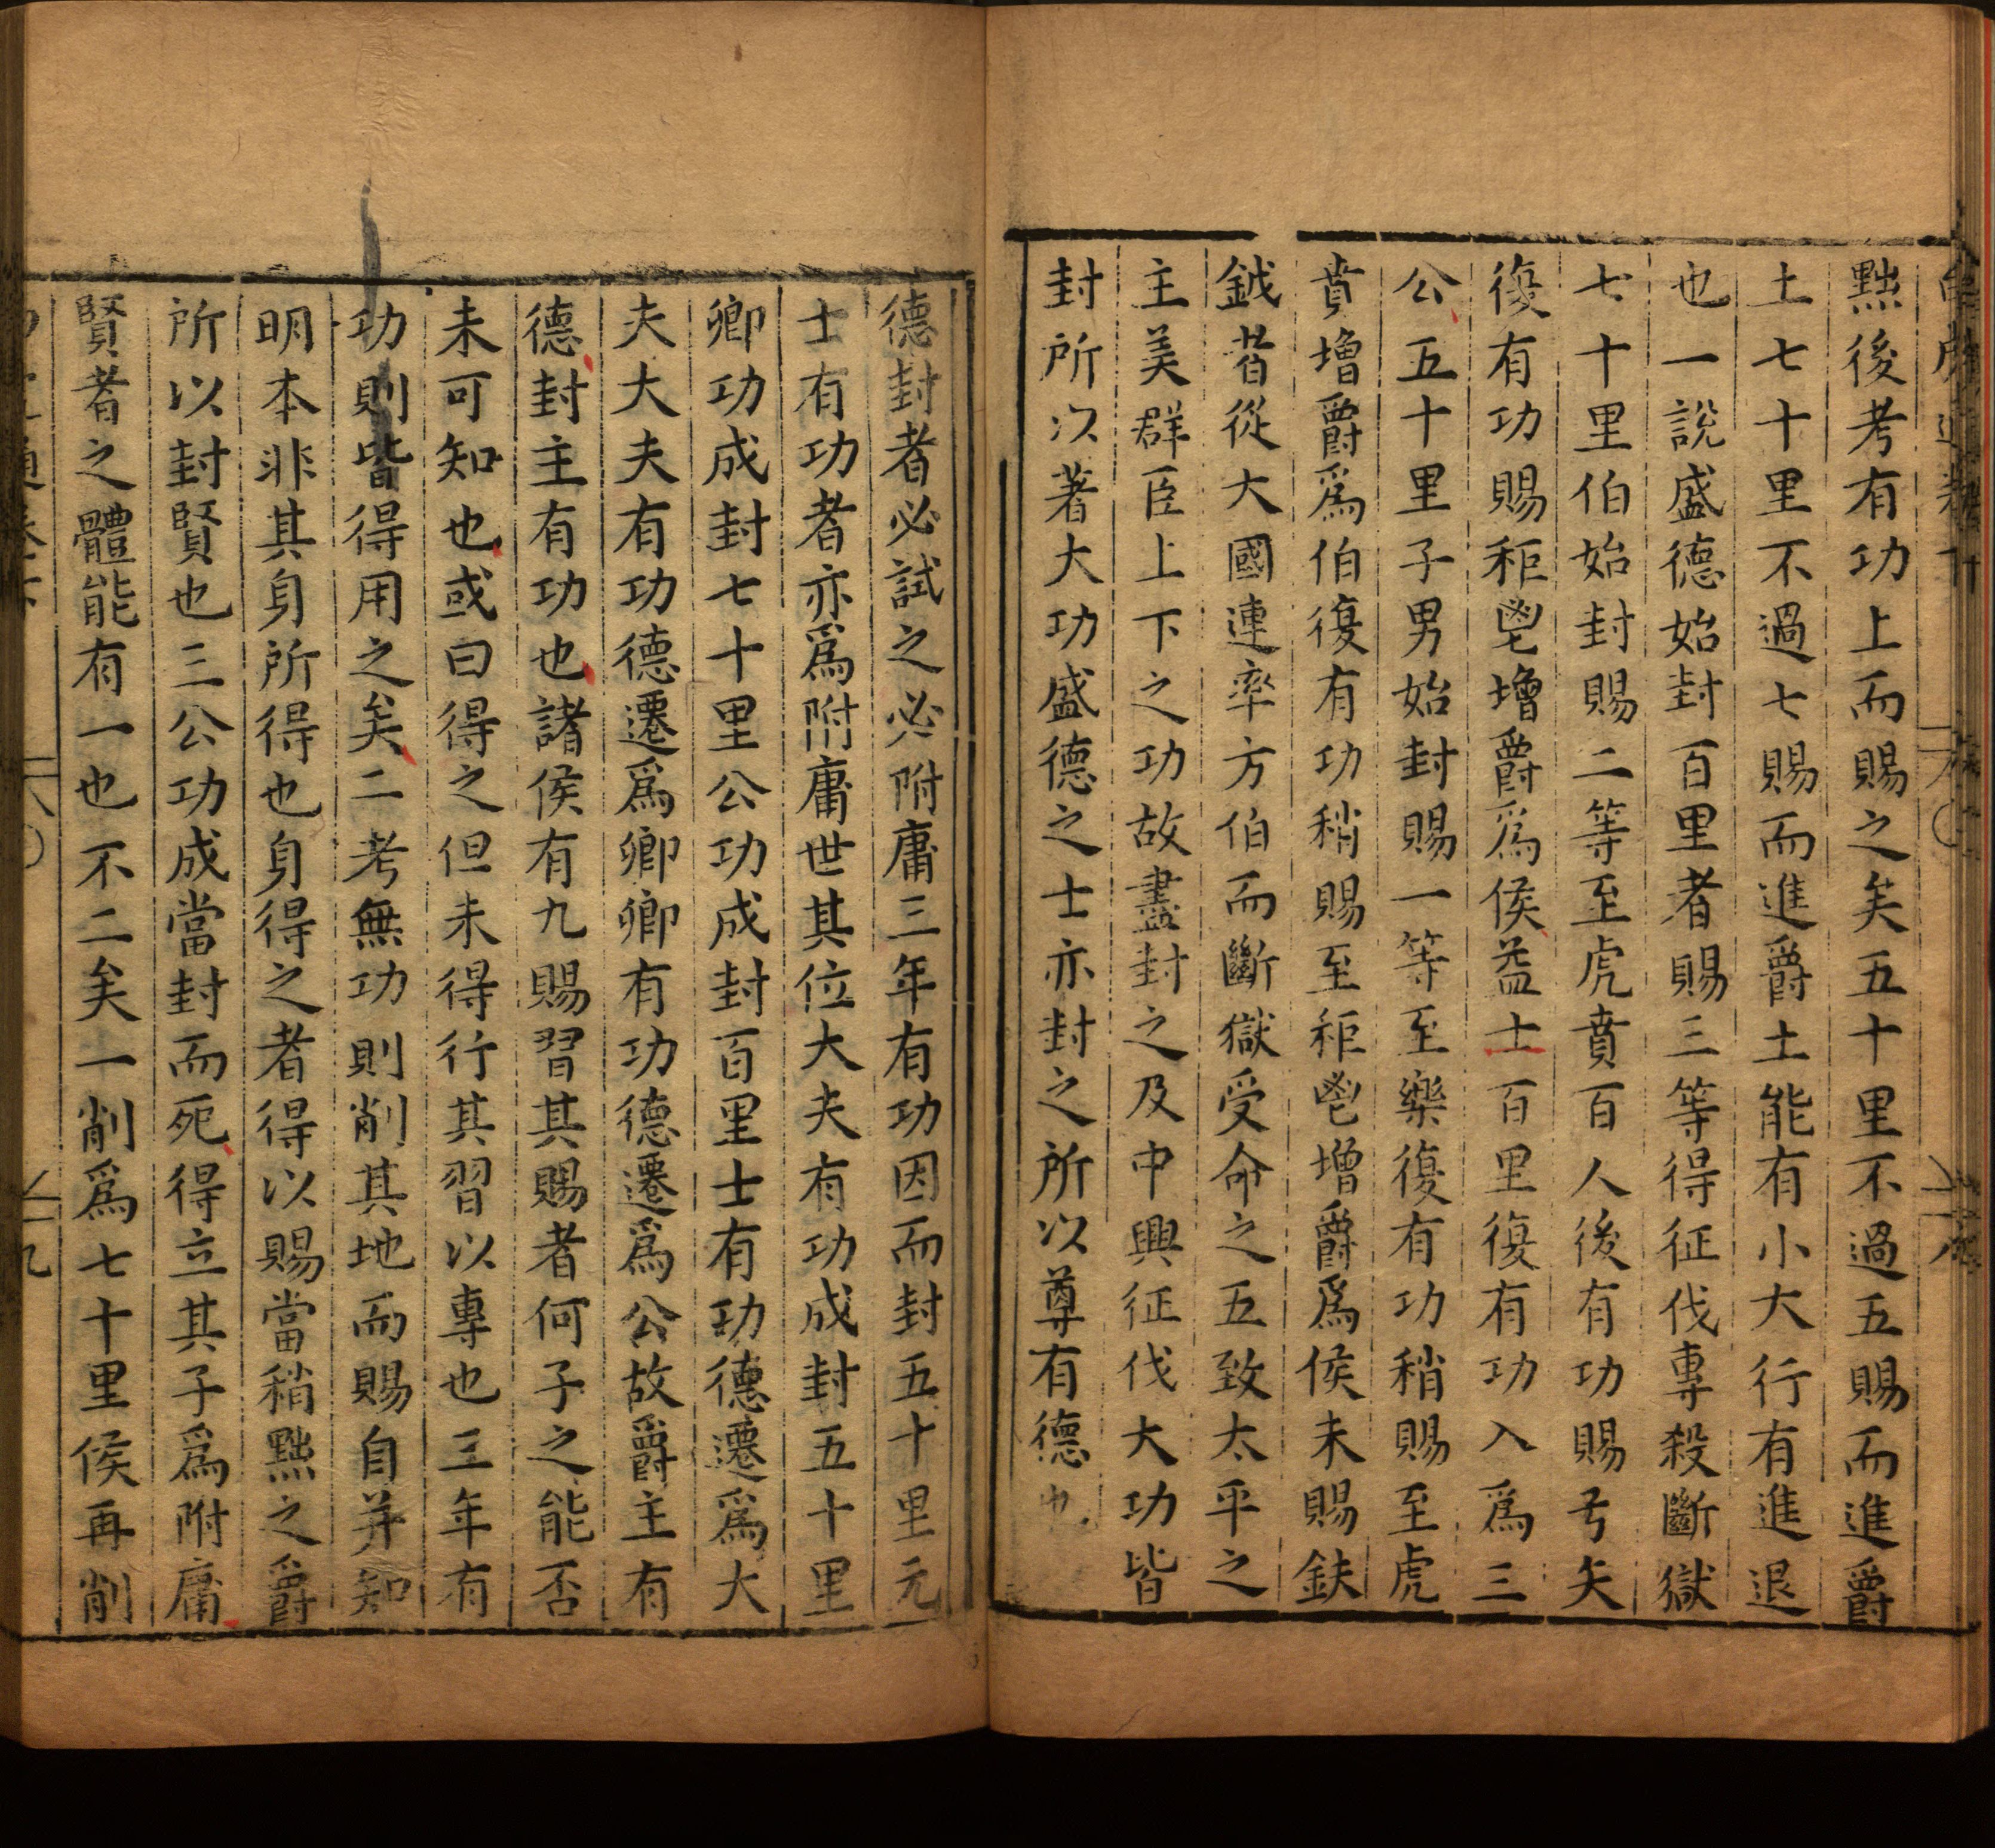 黜後考有功上而賜之矣五十里不過五賜而進爵
土七十里不過七賜而進爵土能有小大行有進退
也一說盛德始封百里者賜三等得征伐專殺斷獄
七十里伯始封賜二等至虎賁百人後有功賜弓矢
復有功賜秬鬯增爵爲侯益土百里復有功入爲三
公五十里子男始封賜一等至樂復有功稍賜至虎
賁增爵爲伯復有功稍賜至秬鬯增爵爲侯未賜鈇
鉞者從大國連率方伯而斷獄受命之五致太平之
主美群臣上下之功故盡封之及中興征伐大功皆
封所以著大功盛德之士亦封之所以尊有德也
德封者必試之必附庸三年有功因而封五十里元
士有功者亦爲附庸世其位大夫有功成封五十里
卿功成封七十里公功成封百里士有功德遷爲大
夫大夫有功德遷爲卿卿有功德遷爲公故爵主有
德封主有功也諸侯有九賜習其賜者何子之能否
未可知也或曰得之但未得行其習以專也三年有
功則皆得用之矣二考無功則削其地而賜自并知
明本非其身所得也身得之者得以賜當稍黜之爵
所以封賢也三公功成當封而死得立其子爲附庸
賢者之體能有一也不二矣一削爲七十里侯再削